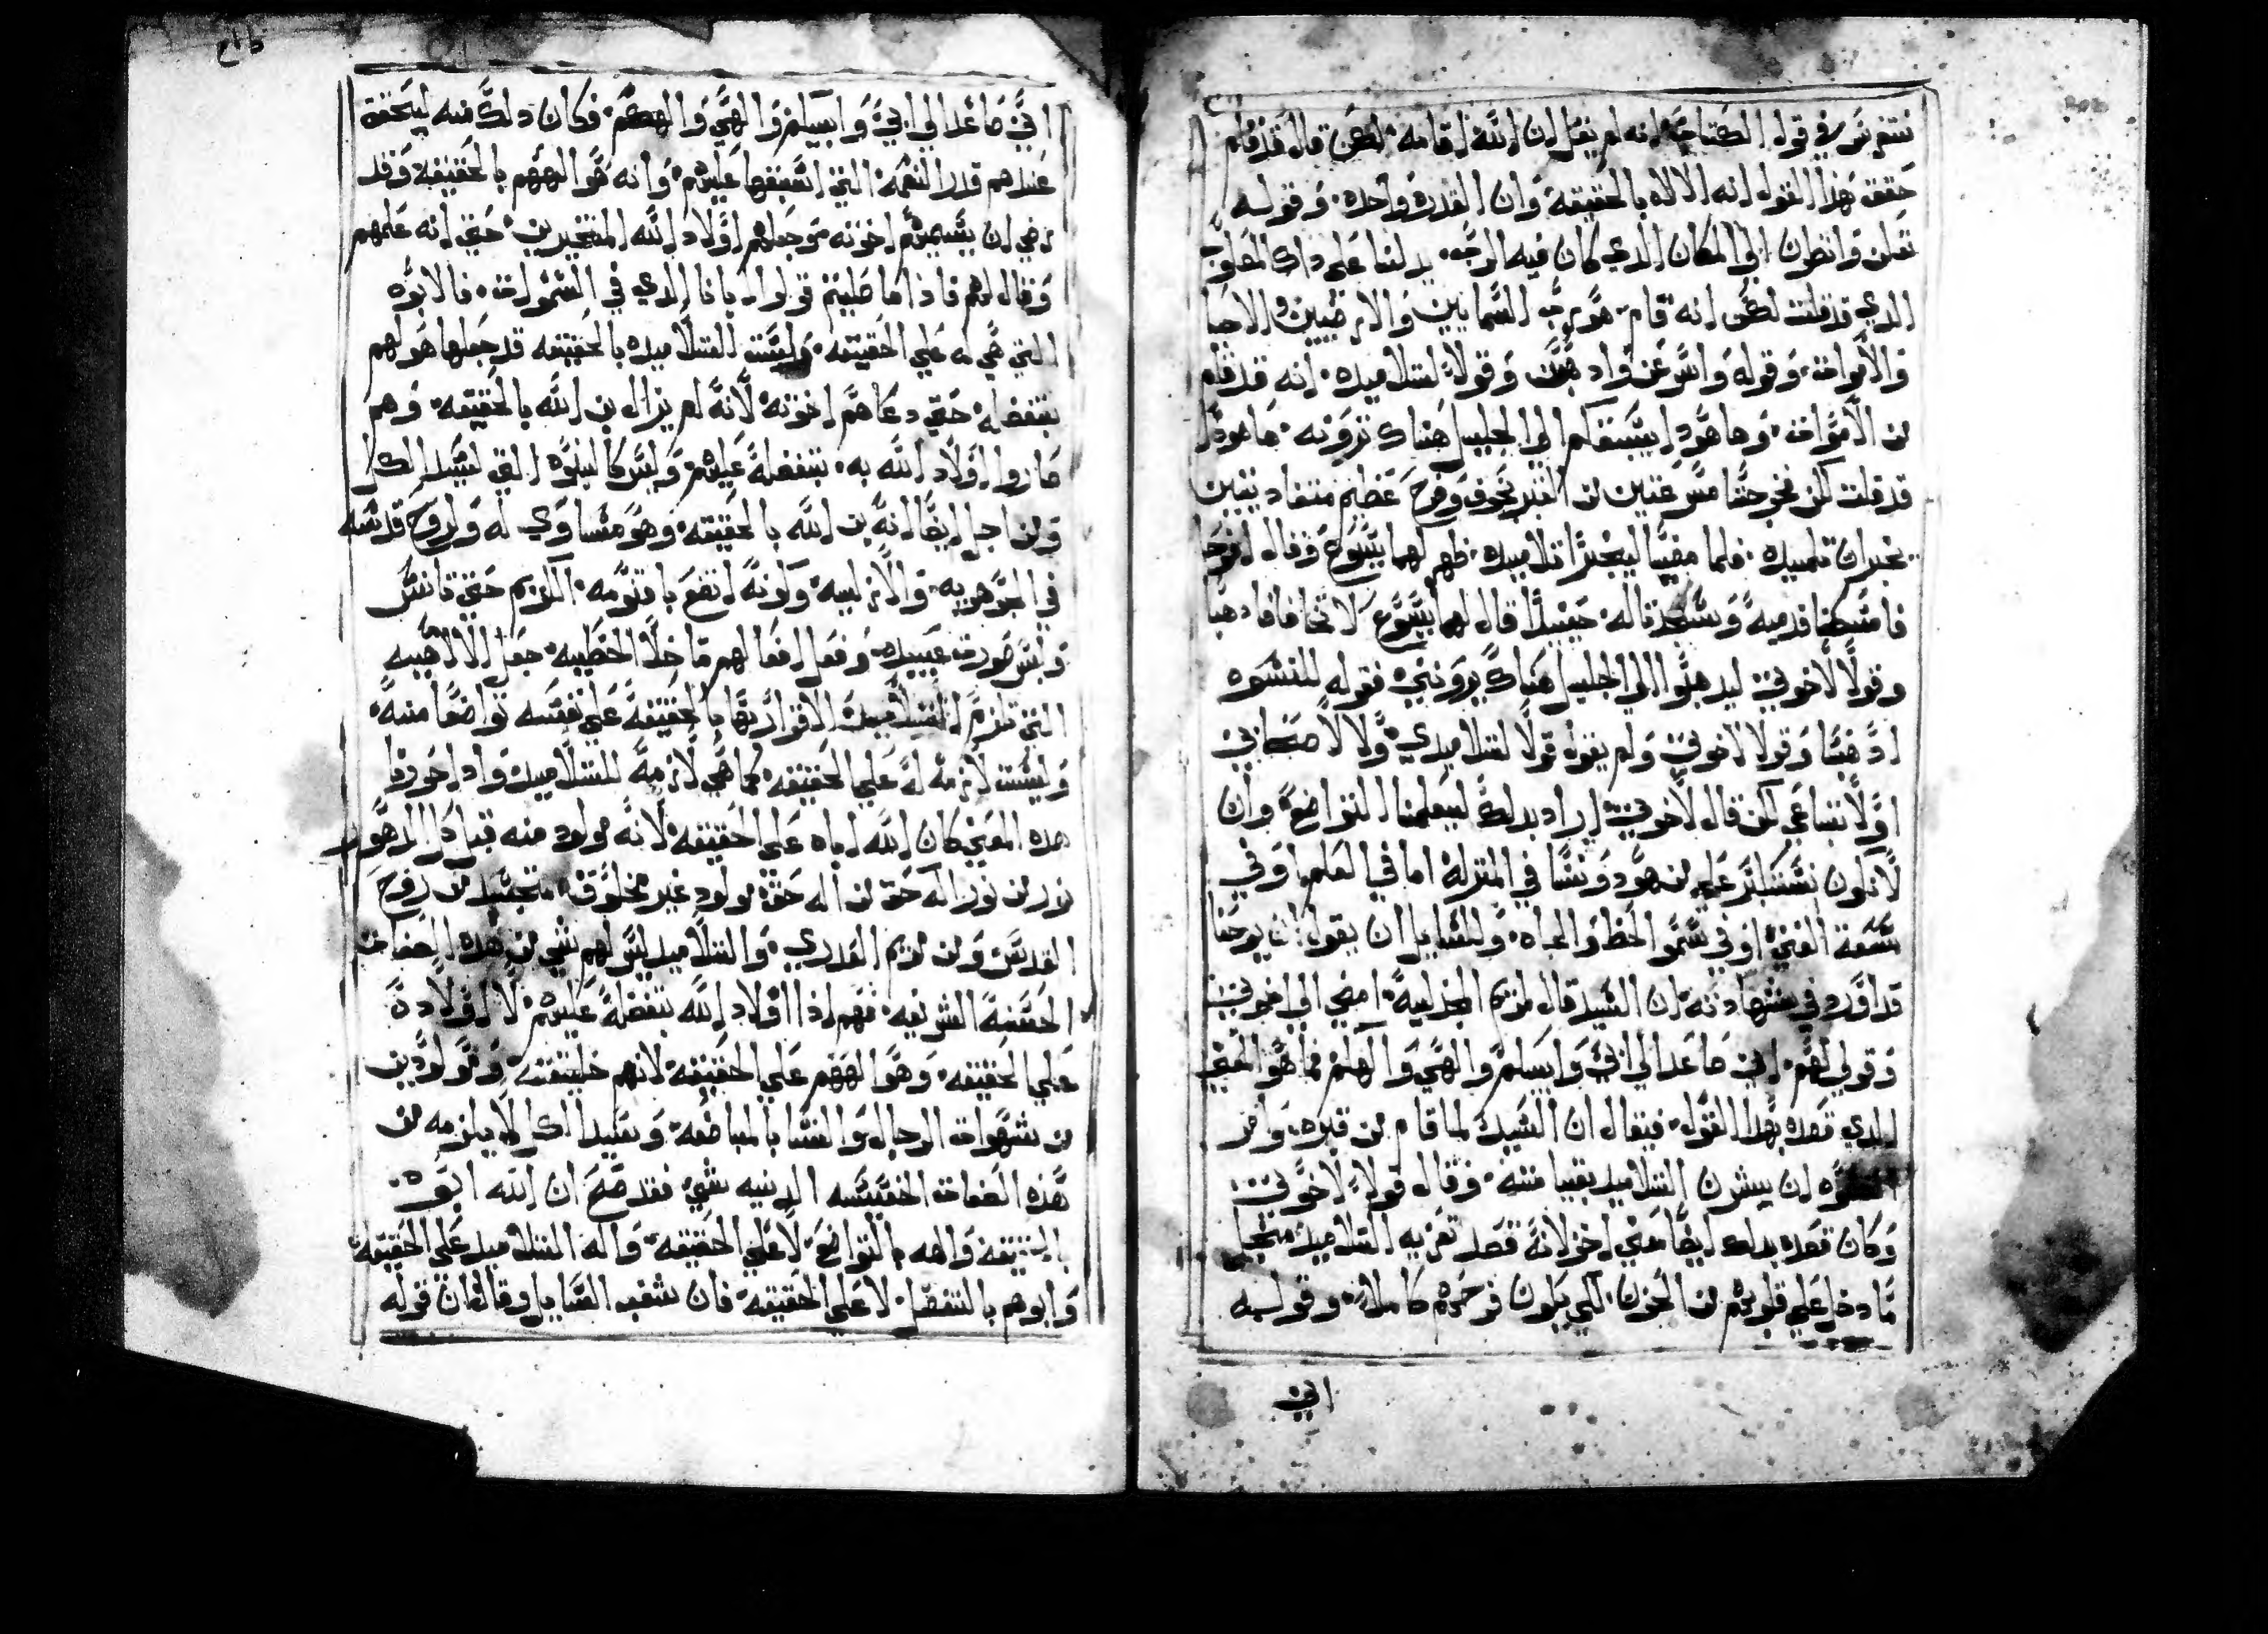 في قوله الكتاب انه لم يقل ان الله اقامه لكن قال قد قام
حقق هذا القول انه الالاه بالحقيقة وان القدره واحده وقوله
تعالن وانظرن الي المكان الدي كان فيه الرب يدلنا علي داك
الدي قد قلت لكن انه قام هو رب السمايين والارضيين والاحيا
والاموات وقوله واسرعن واد هبن وقولا لتلاميده انه قد قام
من الاموات وها هودا يسبقكم الي الجليل هناك ترونه هاهودا
قد قلت لكن فخرجتا مسرعتين من القبر بخوف وفرح عظيم
يخبران تلميده فلما مضيا ليخبرا تلاميده ظهر لهما يسوع وقال افرحا
فامسكتا قدميه وسجدتا له حينيدا قال لهما يسوع لا تخافا فادهبا
وقولا لاخوتي ليدهبوا الي الجليل هناك يرونني فقوله للنسوه
ادهبا وقولا لاخوتي ولم يقول قولا لتلاميدي ولا لاصحابي
اولا تباعي لكن قال لاخوتي اراد بدلك ليعلمنا التواضع وان
لا نكون علي من هو دوننا في المنزله اما في العلم اوفي
سعة الغني اوفي سمو الحظ والجاه وللسايل ان يقول ان يوحنا
قد اورد في شهادته ان السيد قال لمريم المجدليه امضي الي اخوتي
وقولي لهم اني صاعدا الي ابي وابيكم والهي والهكم فما هو المعني
الدي قصده بهدا القول فيقال ان السيد لما قام من قبره وامر
النسوه ان يبشرن التلاميد بقيامته وقال قولا لاخوتي
وكان قصده بدلك ايضا معني اخر لانه قصد تعزيه التلاميد
ما دخل علي قلوبهم من الحزن لكي يكون فرحهم كاملا وقوله
اني
اني صاعدا الي ابي وابيكم والهي والهكم فكان دلك منه ليحقق
عندهم قدر النعمه التي انعم بها عليهم وانه هو الههم بالحقيقه وقد
رضي ان يسميهم اخوته وجعلهم اولاد الله المتخيرين حتي انه علمهم
وقال لهم فاذا ما صليتم قولوا يا ابانا الدي في السموات فالابوه
التي هي له علي الحقيقه وليست للتلاميده بالحقيقه قد جعلها هو لهم
بتفضله حتي دعاهم اخوته لانه لم يزال بن الله بالحقيقه وهم
صاروا اولاد الله به بتفضله عليهم وليس كالبنوه التي لسيد الكل
ومن اجل ايضا انه بن الله بالحقيقه وهو مساوي له ولروح قدسه
في الجوهريه والازليه وكونه اتضع باقنومه الكريم حتي تانس
ولبس صورة عبيده وفعل افعالهم ما خلا الخطيه جعل الالاهيه
التي تلزم التلاميده الاقرار بها بالحقيقه علي نفسه تواضعا منه
وليست لازمه له علي الحقيقه كما هي لازمه للتلاميده واد
هده المعني كان الله اباه علي الحقيقه لانه مولود منه قبل كل الدهور
نور من نور اله حق من اله حق مولود غير مخلوق متجسد من روح
القدس ومن مريم العدري والتلاميد ليس لهم شي من هده الصفات
الحسنه الشريفه فهم اذا اولاد الله بتفضله عليهم لا اولاده
علي الحقيقه وهو الههم علي الحقيقه لانهم خليقته
من شهوات الرجال والنسا بالمباضعه وسيد الكل لا يلزمه من
هذه الصفات الخسيسه الدنيه شي فقد صح ان الله ابوه
بالحقيقه والهه بالتواضع لا علي الحقيقه واله التلاميد علي الحقيقه
وابوهم بالتفضل لا علي الحقيقه فان شغب السايل وقال فان قوله